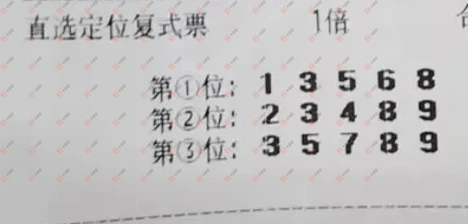 直选定位复式票 1倍
第①位: 1 3 5 6 8
第②位: 2 3 4 8 9
第③位: 3 5 7 8 9